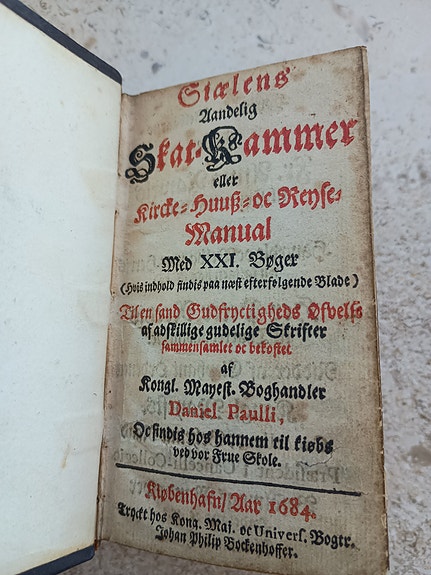 Siælens
Aandelig
Skat-Kammer
eller
Kircke-Huuß-oc Reyse-
Manual
Med XXI. Bøger
(Hvis indhold findis paa næst efterfølgende Blade)
Til en sand Gudfryctigheds Øfvelse
af adskillige gudelige Skrifter
sammensamlet oc bekostet
af
Kongl. Mayest. Boghandler
Daniel Paulli,
Oc findis hos hannem til kiøbs
ved vor Frue Skole.
Kiøbenhafn/ Aar 1684.
Tryckt hos Konq. Maj. oc Univers. Bogtr.
Johan Philip Bockenhoffer.